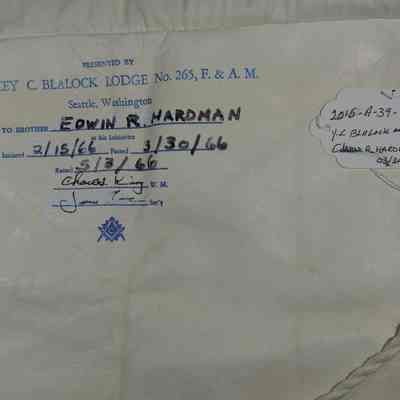 PRESENTED BY
KEY C. BLALOCK LODGE No. 265, F. & A. M.
Seattle, Washington
TO BROTHER EDWIN R. HARDMAN
at his Initiation
Initiated 2/15/66 Passed 3/30/66
Raised 5/3/66
Charles King W. M.
Sec'y
2015-A-39-
Y.C BLALOCK
R. HARD
03/2